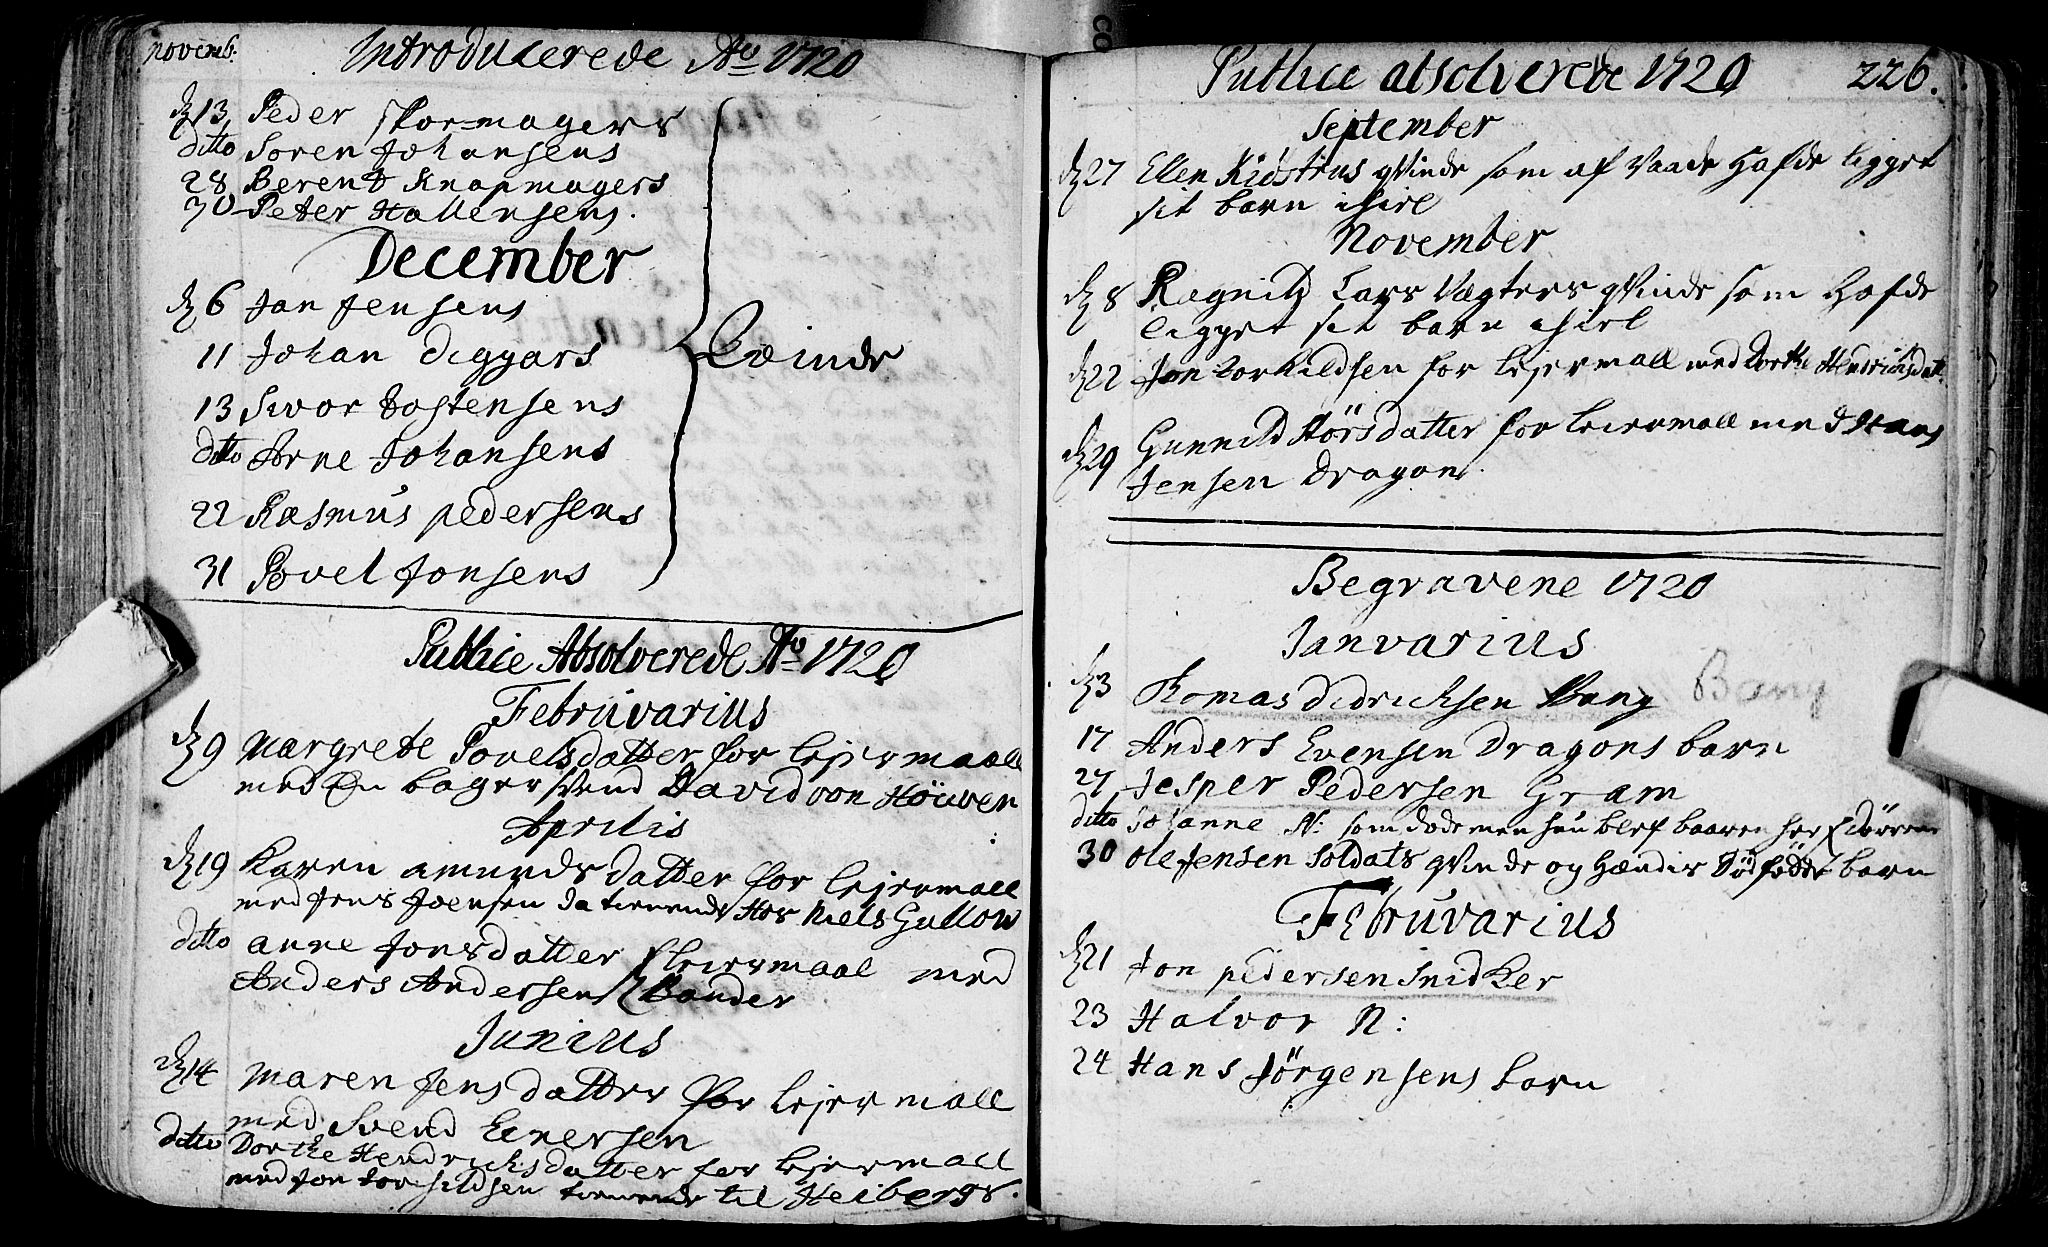 novemb: Introducerede Ao 1720
d 13 Peder skormagers
ditto Soren Johansens
28 Berent Knapmagers
30 Peter Hallensens.
December
d 6 Jan Jensens
11 Johan Diggars
Qvinde
13 Sivor Jostensens
ditto Arne Johansens
22 Rasmus pedersens
31 Povel Jonsens
Publice Absolverede Ao 1720
Februvarius
d 9 Margrete Povelsdatter for lejermaall
med En bager svend David von Höuven
Aprilis
d 19 Karen amundsdatter for lejermall
med Jens Joensen da tienende Hos Niels Gullow
ditto anne Jonsdatter f leiermaal med
Anders Andersen Bonder
Junius
d 14 Maren Jensdatter for lejermall
med Svend Einersen
ditto Dorthe Hendrichsdatter for lejermall
med Jon Torchildsen tienende til Heibergs.
Publice absolverede 1720 226.
September
d 27 Ellen Kidstrus qvinde som af Vaade Hafde ligget
sit barn ihiel
November
d 8 Ragnild Lars Vegters qvinde som Hafde
ligget sit barn ihiel
d 22 Jon Torkildsen for lejermall med Dorthe Hendrichsdatt.
d 29 Gunnild Störsdatter for leiermall med Hans
Jensen Dragon
Begravene 1720
Janvarius
d 3 Thomas Didrichsen Bang Bang
17 Anders Evensen Dragons barn
27 Jesper Pedersen Gram
ditto Johanne N: som döde men hun blef baaren her f dörren
30 Ole Jensen Soldats qvinde og Hændis Dödfödde barn
Februvarius
d 21 Jon pedersen Snidker
23 Halvor N:
24 Hans Jörgensens barn